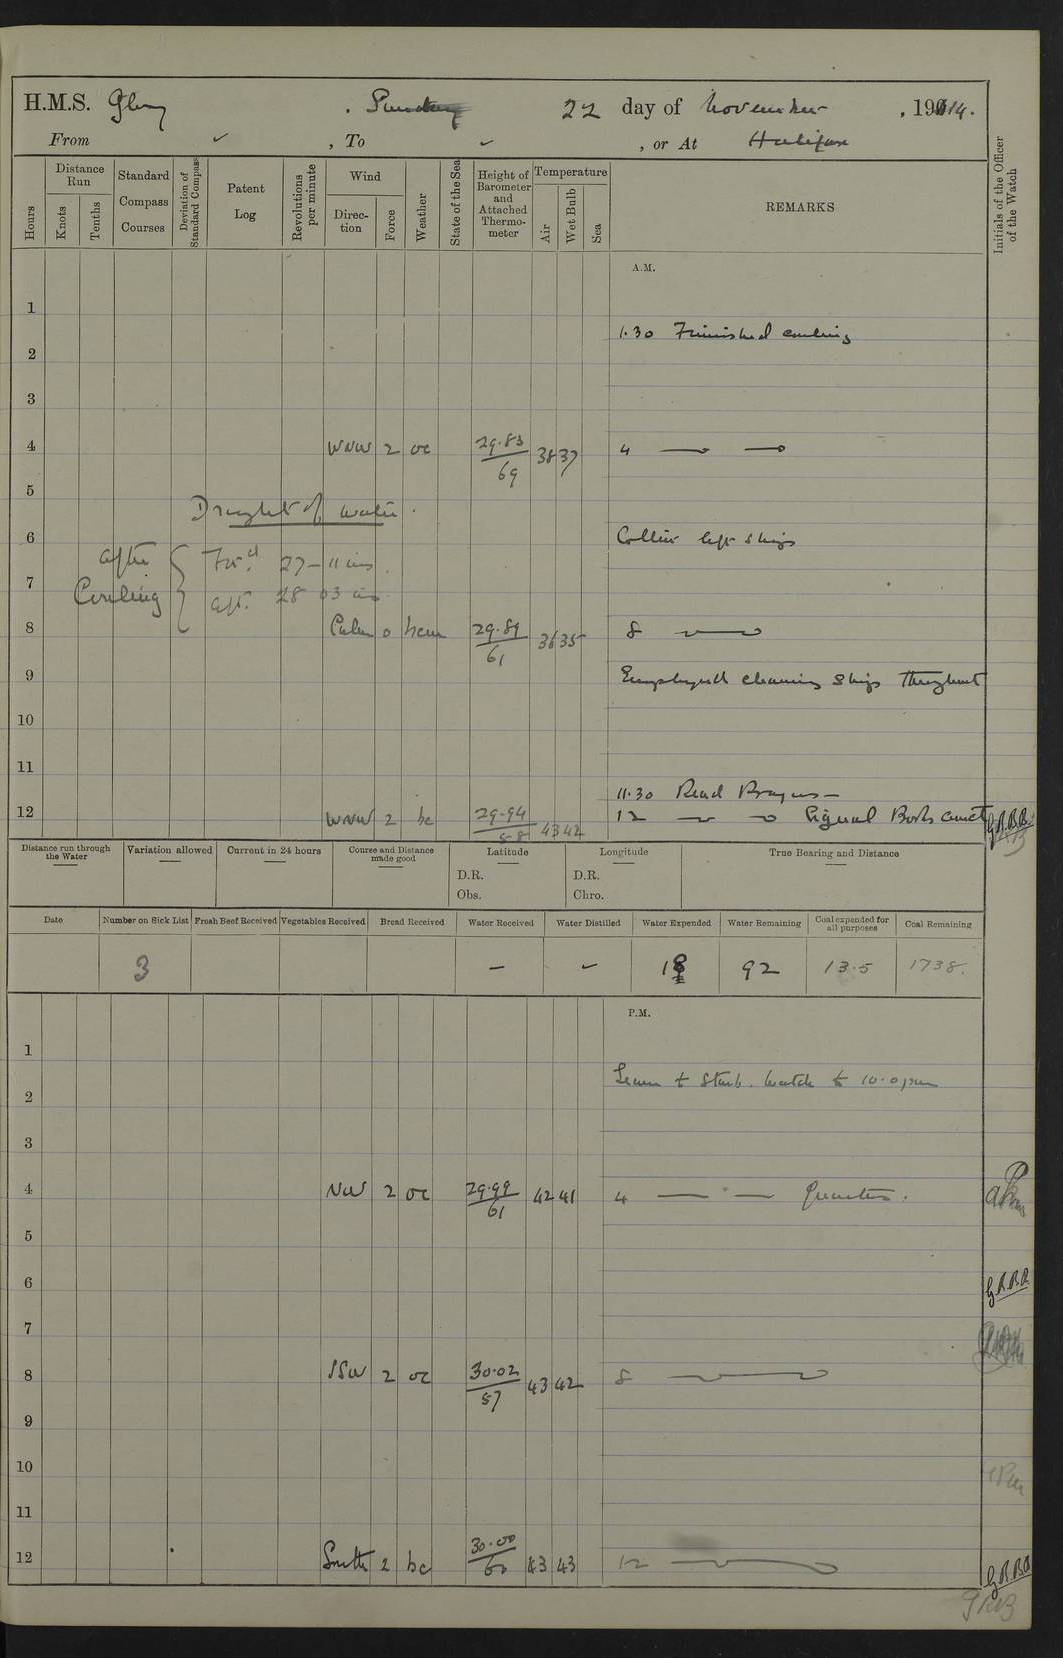 H.M.S. Glory , Sunday 22 day of November , 1914.
From ✓ , To ✓ , or At Halifax
Hours
Distance Run
Knots
Tenths
Standard Compass Courses
Deviation of Standard Compass
Patent Log
Revolutions per minute
Wind
Direction
Force
Weather
State of the Sea
Height of Barometer and Attached Thermometer
Temperature
Air
Wet Bulb
Sea
REMARKS
Initials of the Officer of the Watch
A.M.
1
1.30 Finished coaling
2
3
4 WNW 2 oc 29.83 69 38 37 4
5
Draught of water.
6 Collier left ship
after Coaling { For'd 27 - 11 ins.
7
Aft. 28 03 ins.
8 Calm 0 bcm 29.89 61 36 35 8
9 Employed cleaning ship throughout
10
11
11.30 Read Prayers
12 WNW 2 bc 29.94 58 43 42 12 Signal Books correct GRBB
Distance run through the Water
Variation allowed
Current in 24 hours
Course and Distance made good
Latitude
D.R.
Obs.
Longitude
D.R.
Chro.
True Bearing and Distance
Date
Number on Sick List
Fresh Beef Received
Vegetables Received
Bread Received
Water Received
Water Distilled
Water Expended
Water Remaining
Coal expended for all purposes
Coal Remaining
3 – – 18 92 13.5 1738.
P.M.
1
Leave to Starb. watch to 10.0 pm
2
3
4 NW 2 oc 29.99 61 42 41 4 Quarters.
5
6 GRBB
7
8 SSW 2 oc 30.02 57 43 42 8
9
10
11
12 South 2 bc 30.00 60 43 43 12 GRBB